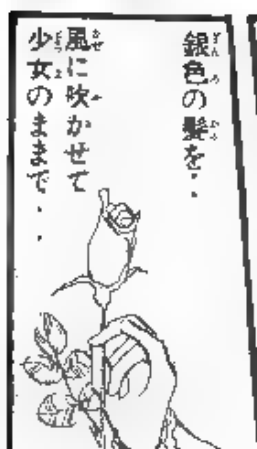 銀色の髪を・・
風に吹かせて
少女のままで・・